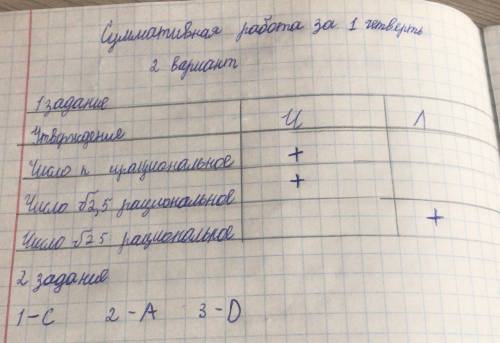 Суммативная работа за 1 четверть
2 вариант
1 задание
Утверждение И Л
Число π ирациональное +
Число √2,5 рациональное +
Число √25 рациональное +
2 задание
1-С 2-А 3-D